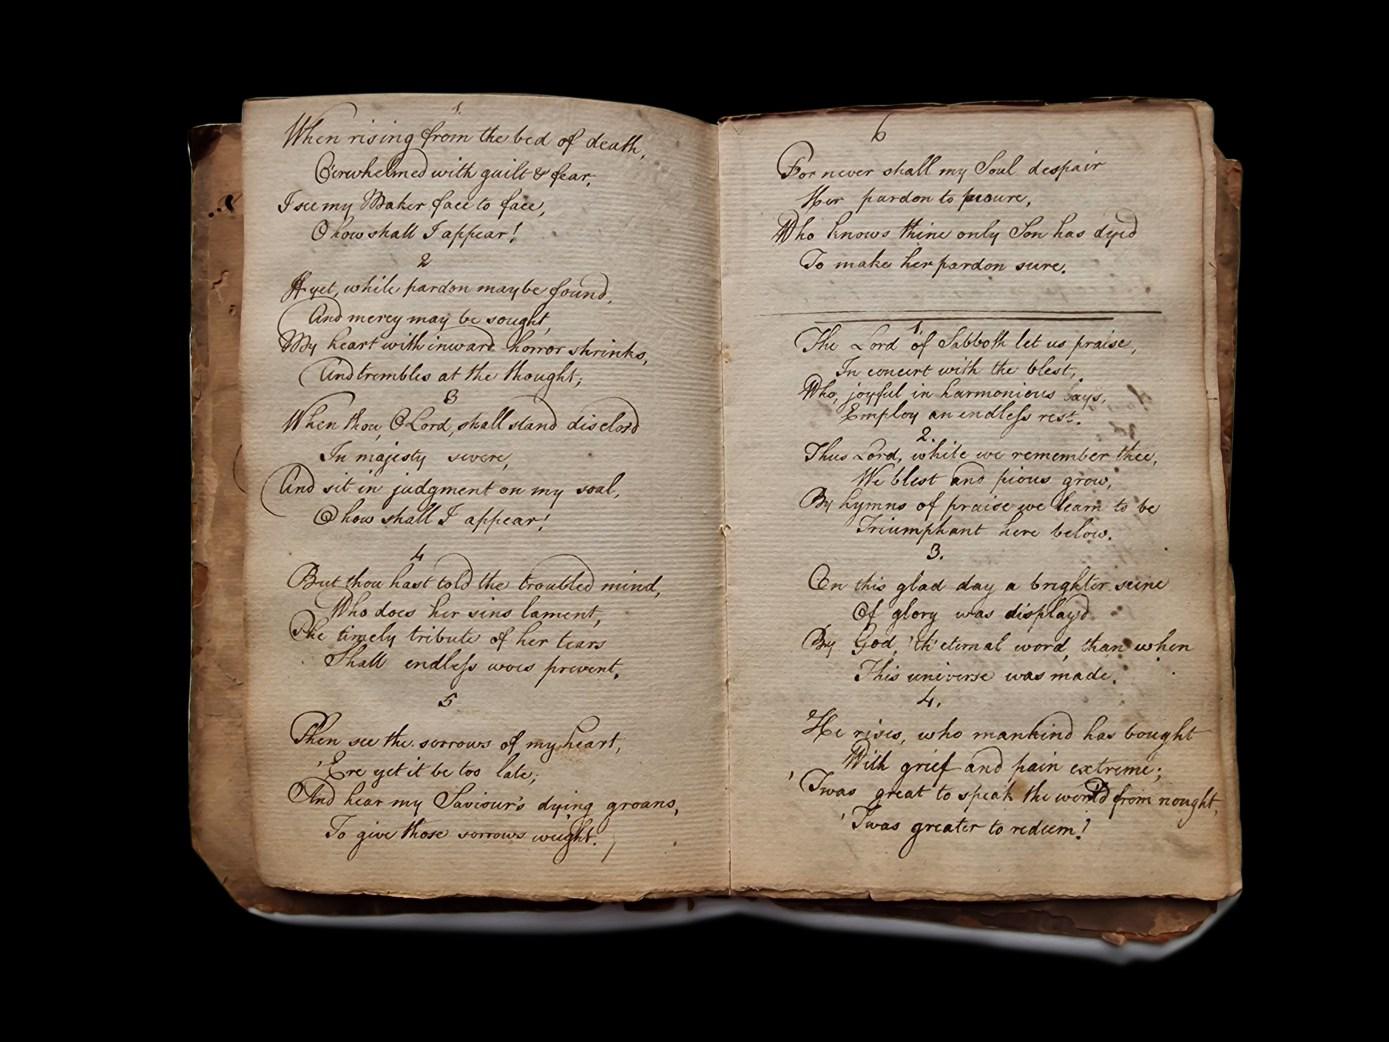 1
When rising from the bed of death,
O'erwhelmed with guilt & fear,
I see my Maker face to face,
O how shall I appear!
2
If yet, while pardon may be found,
And mercy may be sought,
My heart with inward horror shrinks,
And trembles at the thought;
3
When thou, O Lord, shall stand disclosd
In majesty severe,
And sit in judgment on my soul,
O how shall I appear!
4
But thou hast told the troubled mind,
Who does her sins lament,
The timely tribute of her tears
Shall endless woes prevent.
5
Then see the sorrows of my heart,
'Ere yet it be too late;
And hear my Saviour's dying groans,
To give those sorrows weight.
6
For never shall my Soul despair
Her pardon to procure,
Who knows thine only Son has dyed
To make her pardon sure.
1.
The Lord of Sabboth let us praise,
In concert with the blest,
Who, joyful in harmonious lays,
Employ an endless rest.
2.
Thus Lord, while we remember thee,
We blest and pious grow,
By hymns of praise we learn to be
Triumphant here below.
3.
On this glad day a brighter scene
Of glory was display'd
By God, th' eternal word, than when
This universe was made.
4.
He rises, who mankind has bought
With grief and pain extreme;
'Twas great to speak the world from nought,
'Twas greater to redeem!